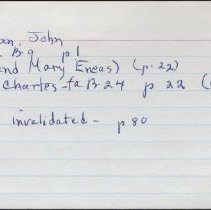 an, John
B9 p1
and Mary Eneas) (p. 22)
Charles - fa B24 p 22 (
invalidated - p 80